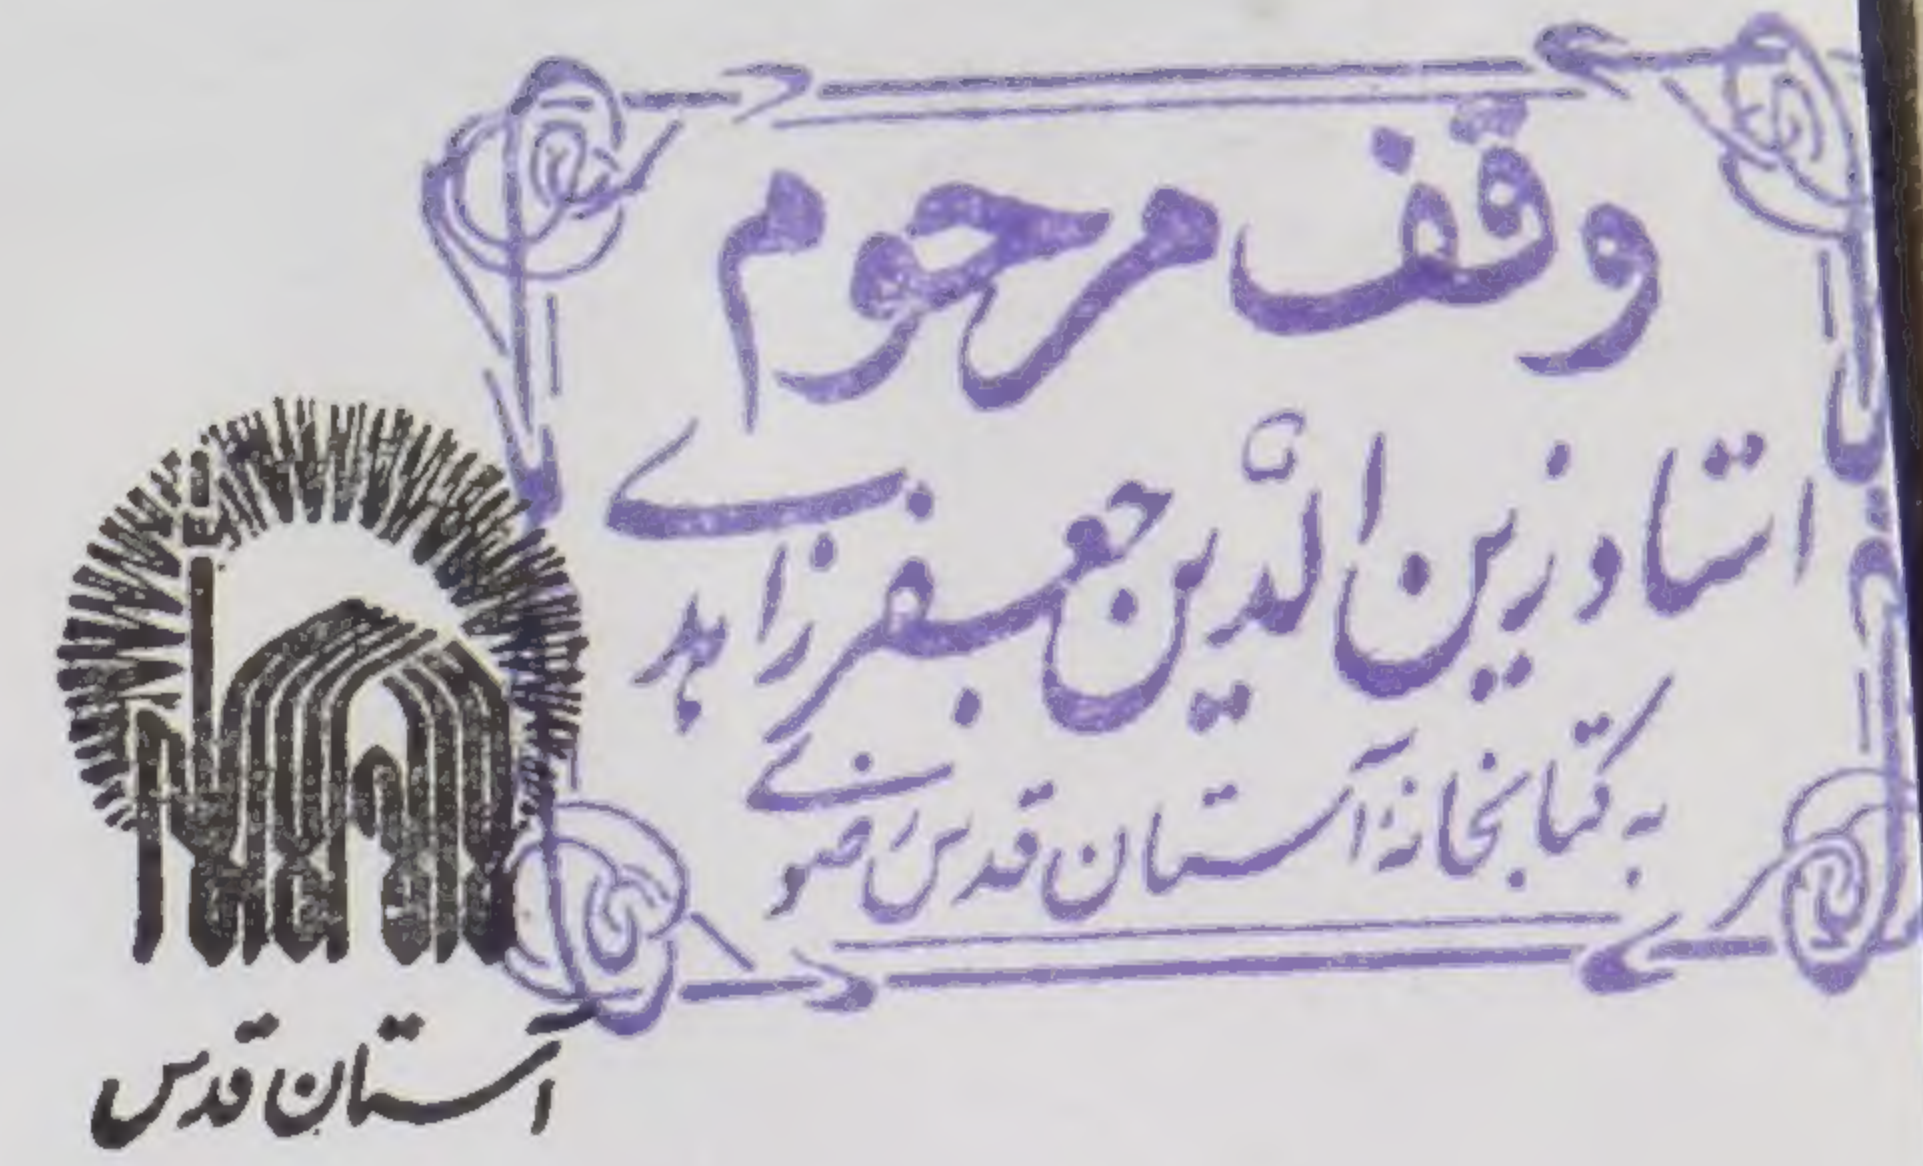 وقف مرحوم
استاد زین الدّین جعفر زاهدی
به کتابخانهٔ آستان قدس رَضوی
آستان قدس